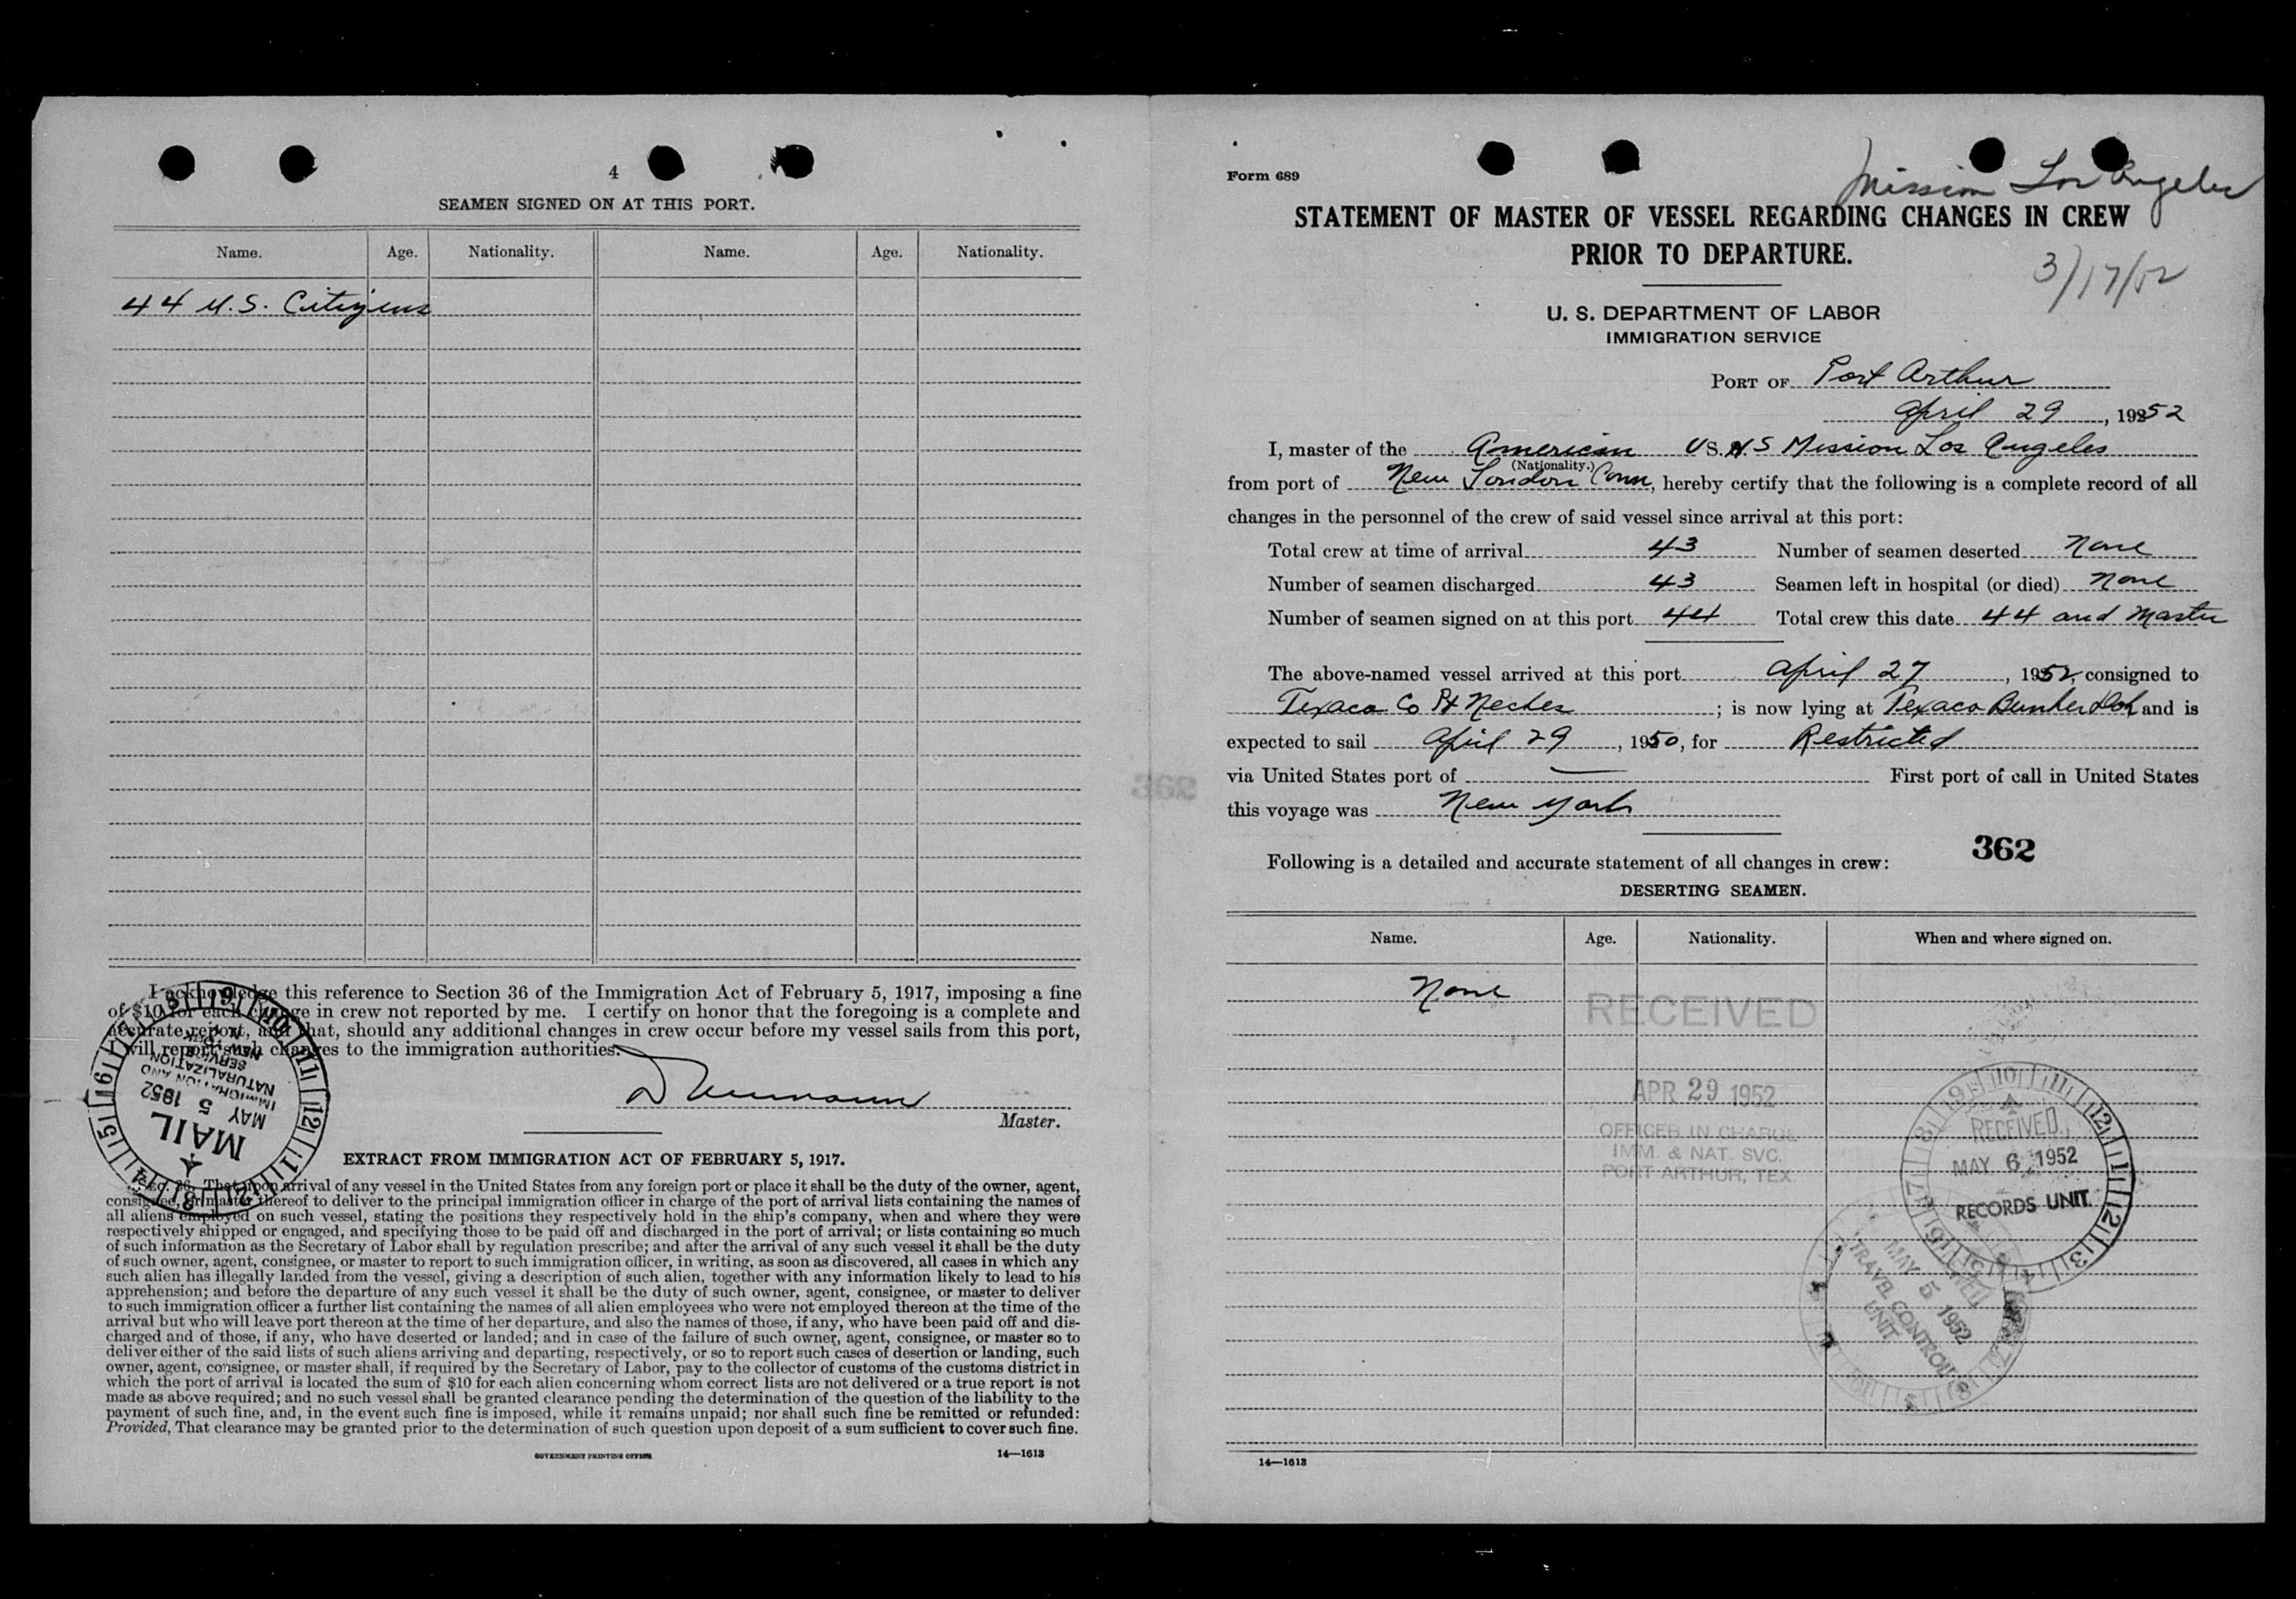 4
SEAMEN SIGNED ON AT THIS PORT.
Name. Age. Nationality. Name. Age. Nationality.
44 U.S. Citizens
I acknowledge this reference to Section 36 of the Immigration Act of February 5, 1917, imposing a fine
of $10 for each change in crew not reported by me. I certify on honor that the foregoing is a complete and
accurate report, and that, should any additional changes in crew occur before my vessel sails from this port,
I will report such changes to the immigration authorities.
Master.
MAIL
MAY 5 1952
IMMIGRATION AND
NATURALIZATION
SERVICE
EXTRACT FROM IMMIGRATION ACT OF FEBRUARY 5, 1917.
Sec. 36. That upon arrival of any vessel in the United States from any foreign port or place it shall be the duty of the owner, agent,
consignee, or master thereof to deliver to the principal immigration officer in charge of the port of arrival lists containing the names of
all aliens employed on such vessel, stating the positions they respectively hold in the ship's company, when and where they were
respectively shipped or engaged, and specifying those to be paid off and discharged in the port of arrival; or lists containing so much
of such information as the Secretary of Labor shall by regulation prescribe; and after the arrival of any such vessel it shall be the duty
of such owner, agent, consignee, or master to report to such immigration officer, in writing, as soon as discovered, all cases in which any
such alien has illegally landed from the vessel, giving a description of such alien, together with any information likely to lead to his
apprehension; and before the departure of any such vessel it shall be the duty of such owner, agent, consignee, or master to deliver
to such immigration officer a further list containing the names of all alien employees who were not employed thereon at the time of the
arrival but who will leave port thereon at the time of her departure, and also the names of those, if any, who have been paid off and dis-
charged and of those, if any, who have deserted or landed; and in case of the failure of such owner, agent, consignee, or master so to
deliver either of the said lists of such aliens arriving and departing, respectively, or so to report such cases of desertion or landing, such
owner, agent, consignee, or master shall, if required by the Secretary of Labor, pay to the collector of customs of the customs district in
which the port of arrival is located the sum of $10 for each alien concerning whom correct lists are not delivered or a true report is not
made as above required; and no such vessel shall be granted clearance pending the determination of the question of the liability to the
payment of such fine, and, in the event such fine is imposed, while it remains unpaid; nor shall such fine be remitted or refunded:
Provided, That clearance may be granted prior to the determination of such question upon deposit of a sum sufficient to cover such fine.
GOVERNMENT PRINTING OFFICE 14—1613
Form 689
Mission Los Angeles
STATEMENT OF MASTER OF VESSEL REGARDING CHANGES IN CREW
PRIOR TO DEPARTURE.
3/17/52
U. S. DEPARTMENT OF LABOR
IMMIGRATION SERVICE
PORT OF Port Arthur
April 29, 1952
I, master of the American U.S.N.S Mission Los Angeles
(Nationality.)
from port of New London Conn, hereby certify that the following is a complete record of all
changes in the personnel of the crew of said vessel since arrival at this port:
Total crew at time of arrival 43 Number of seamen deserted None
Number of seamen discharged 43 Seamen left in hospital (or died) None
Number of seamen signed on at this port 44 Total crew this date 44 and Master
The above-named vessel arrived at this port April 27, 1952, consigned to
Texaco Co Pt Neches; is now lying at Texaco Bunker Dok and is
expected to sail April 29, 1950, for Restricted
via United States port of — First port of call in United States
this voyage was New York
362
Following is a detailed and accurate statement of all changes in crew:
DESERTING SEAMEN.
Name. Age. Nationality. When and where signed on.
None
RECEIVED
APR 29 1952
OFFICER IN CHARGE
IMM. & NAT. SVC.
PORT ARTHUR, TEX.
RECEIVED
MAY 6 1952
RECORDS UNIT
MAY 5 1952
TRAVEL CONTROL
UNIT
14—1613